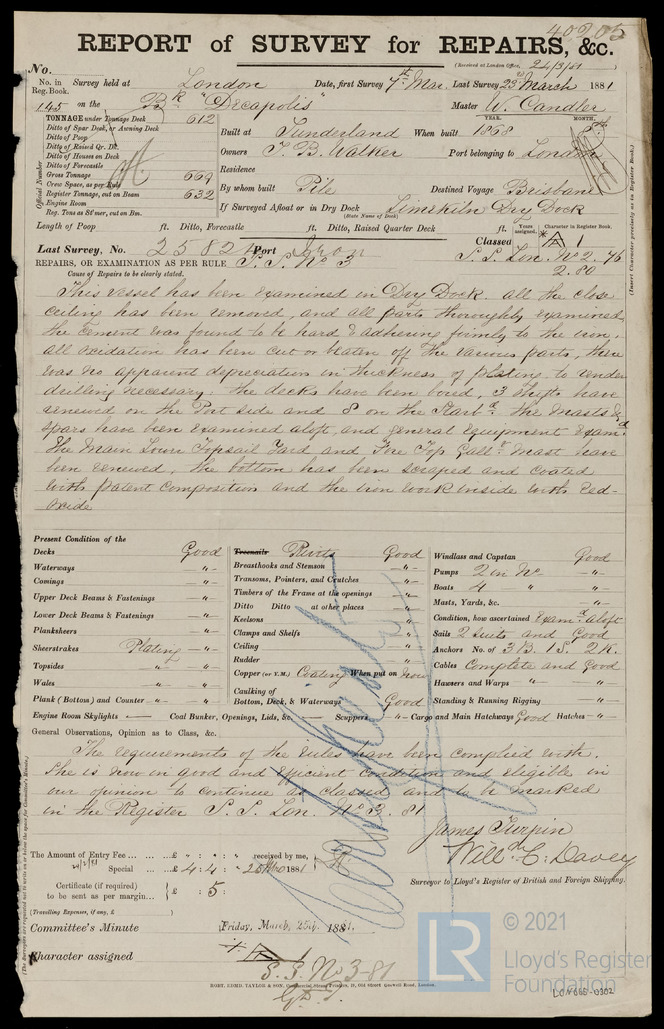 40205
REPORT of SURVEY for REPAIRS, &c.
(Received at London Office, 24/3/81
No.
No. in Reg. Book. Survey held at London Date, first Survey 7th Mar. Last Survey 23rd March 1881
145 on the Bk "Decapolis" Master W. Candler
TONNAGE under Tonnage Deck 612
Ditto of Spar Deck, or Awning Deck
Ditto of Poop
Ditto of Raised Qr. Dk.
Ditto of Houses on Deck
Ditto of Forecastle
Gross Tonnage 669
Crew Space, as per Rule
Register Tonnage, cut on Beam 632
Engine Room
Reg. Tons as St'mer, cut on Bm.
Official Number
YEAR. MONTH.
Built at Sunderland When built 1868
Owners J. B. Walker Port belonging to London
Residence
By whom built Pile Destined Voyage Brisbane
If Surveyed Afloat or in Dry Dock Limekiln Dry Dock
(State Name of Dock)
Length of Poop ft. Ditto, Forecastle ft. Ditto, Raised Quarter Deck ft.
Years assigned. Character in Register Book.
Last Survey, No. 25824 Port Iron Classed A 1
REPAIRS, OR EXAMINATION AS PER RULE S.S. No 3 S.S. Lon. No 2. 76
Cause of Repairs to be clearly stated. 2.80
(Insert Character precisely as in Register Book.)
This vessel has been examined in Dry Dock. all the close
ceiling has been removed, and all parts thoroughly examined
the cement was found to be hard & adhering firmly to the iron.
all oxidation has been cut or beaten off the various parts, there
was no apparent depreciation in thickness of plating to render
drilling necessary. the decks have been bored, 3 shifts have
renewed on the Port side and 8 on the Starbd. the masts &
spars have been examined aloft, and general equipment examd.
The Main Lower Topsail Yard and Fore Top Gallt Mast have
been renewed. the bottom has been scraped and coated
with patent composition and the iron work inside with red-
oxide
Present Condition of the
Decks Good
Waterways -"-
Comings -"-
Upper Deck Beams & Fastenings -"-
Lower Deck Beams & Fastenings -"-
Planksheers -"-
Sheerstrakes Plating -"-
Topsides " -"-
Wales " -"-
Plank (Bottom) and Counter -"- -"-
Engine Room Skylights Coal Bunker, Openings, Lids, &c. Scuppers -"- Cargo and Main Hatchways Good Hatches -"-
Treenails Rivets Good
Breasthooks and Stemson -"-
Transoms, Pointers, and Crutches -"-
Timbers of the Frame at the openings -"-
Ditto Ditto at other places -"-
Keelsons -"-
Clamps and Shelfs -"-
Ceiling -"-
Rudder -"-
Copper (or Y.M.) Coating When put on now
Caulking of
Bottom, Deck, & Waterways Good
Windlass and Capstan Good
Pumps 2 in No. -"-
Boats 4 " -"-
Masts, Yards, &c. -"-
Condition, how ascertained Examd. aloft
Sails 2 suits and Good
Anchors No. of 3 B. 1 S. 2 K.
Cables Complete and Good
Hawsers and Warps " -"-
Standing & Running Rigging -"-
General Observations, Opinion as to Class, &c.
The requirements of the rules have been complied with.
She is now in good and efficient condition and eligible in
our opinion to continue as classed and to be marked
in the Register S.S. Lon. No 3. 81
James Turpin
Will. C. Davey
Surveyor to Lloyd's Register of British and Foreign Shipping.
The Amount of Entry Fee £ " : " : " received by me,
Special £ 4 : 4 : 1881
Certificate (if required) to be sent as per margin £ : 5 :
(Travelling Expenses, if any, £ )
Committee's Minute Friday, March, 25th, 1881.
Character assigned A 1
S.S. No 3-81
ROBT. EDMD. TAYLOR & SON, Commercial Steam Printers, 19, Old Street Goswell Road, London.
LR © 2021
Lloyd's Register
Foundation
LON 665-0302